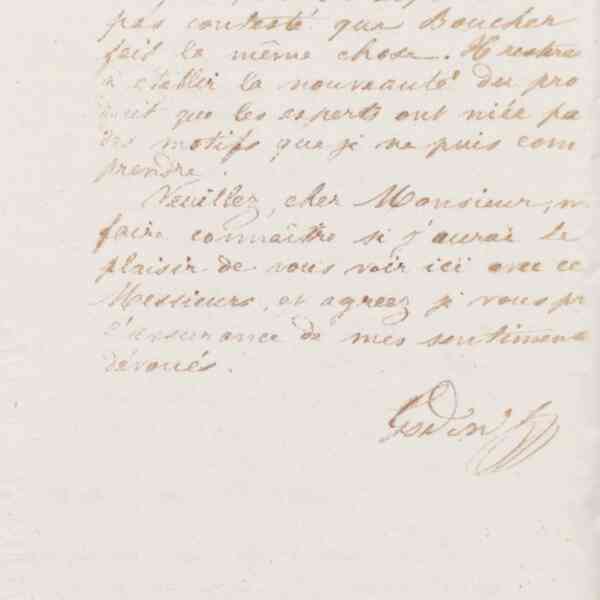 pas contesté que Boucher
fait la même chose. Il restera
à établir la nouveauté du pro
duit que les experts ont niée pa
des motifs que je ne puis com
prendre.
Veuillez, cher Monsieur, m
faire connaître si j'aurai le
plaisir de vous voir ici avec ce
Messieurs, et agréez je vous pr
l'assurance de mes sentimen
dévoués.
Godin